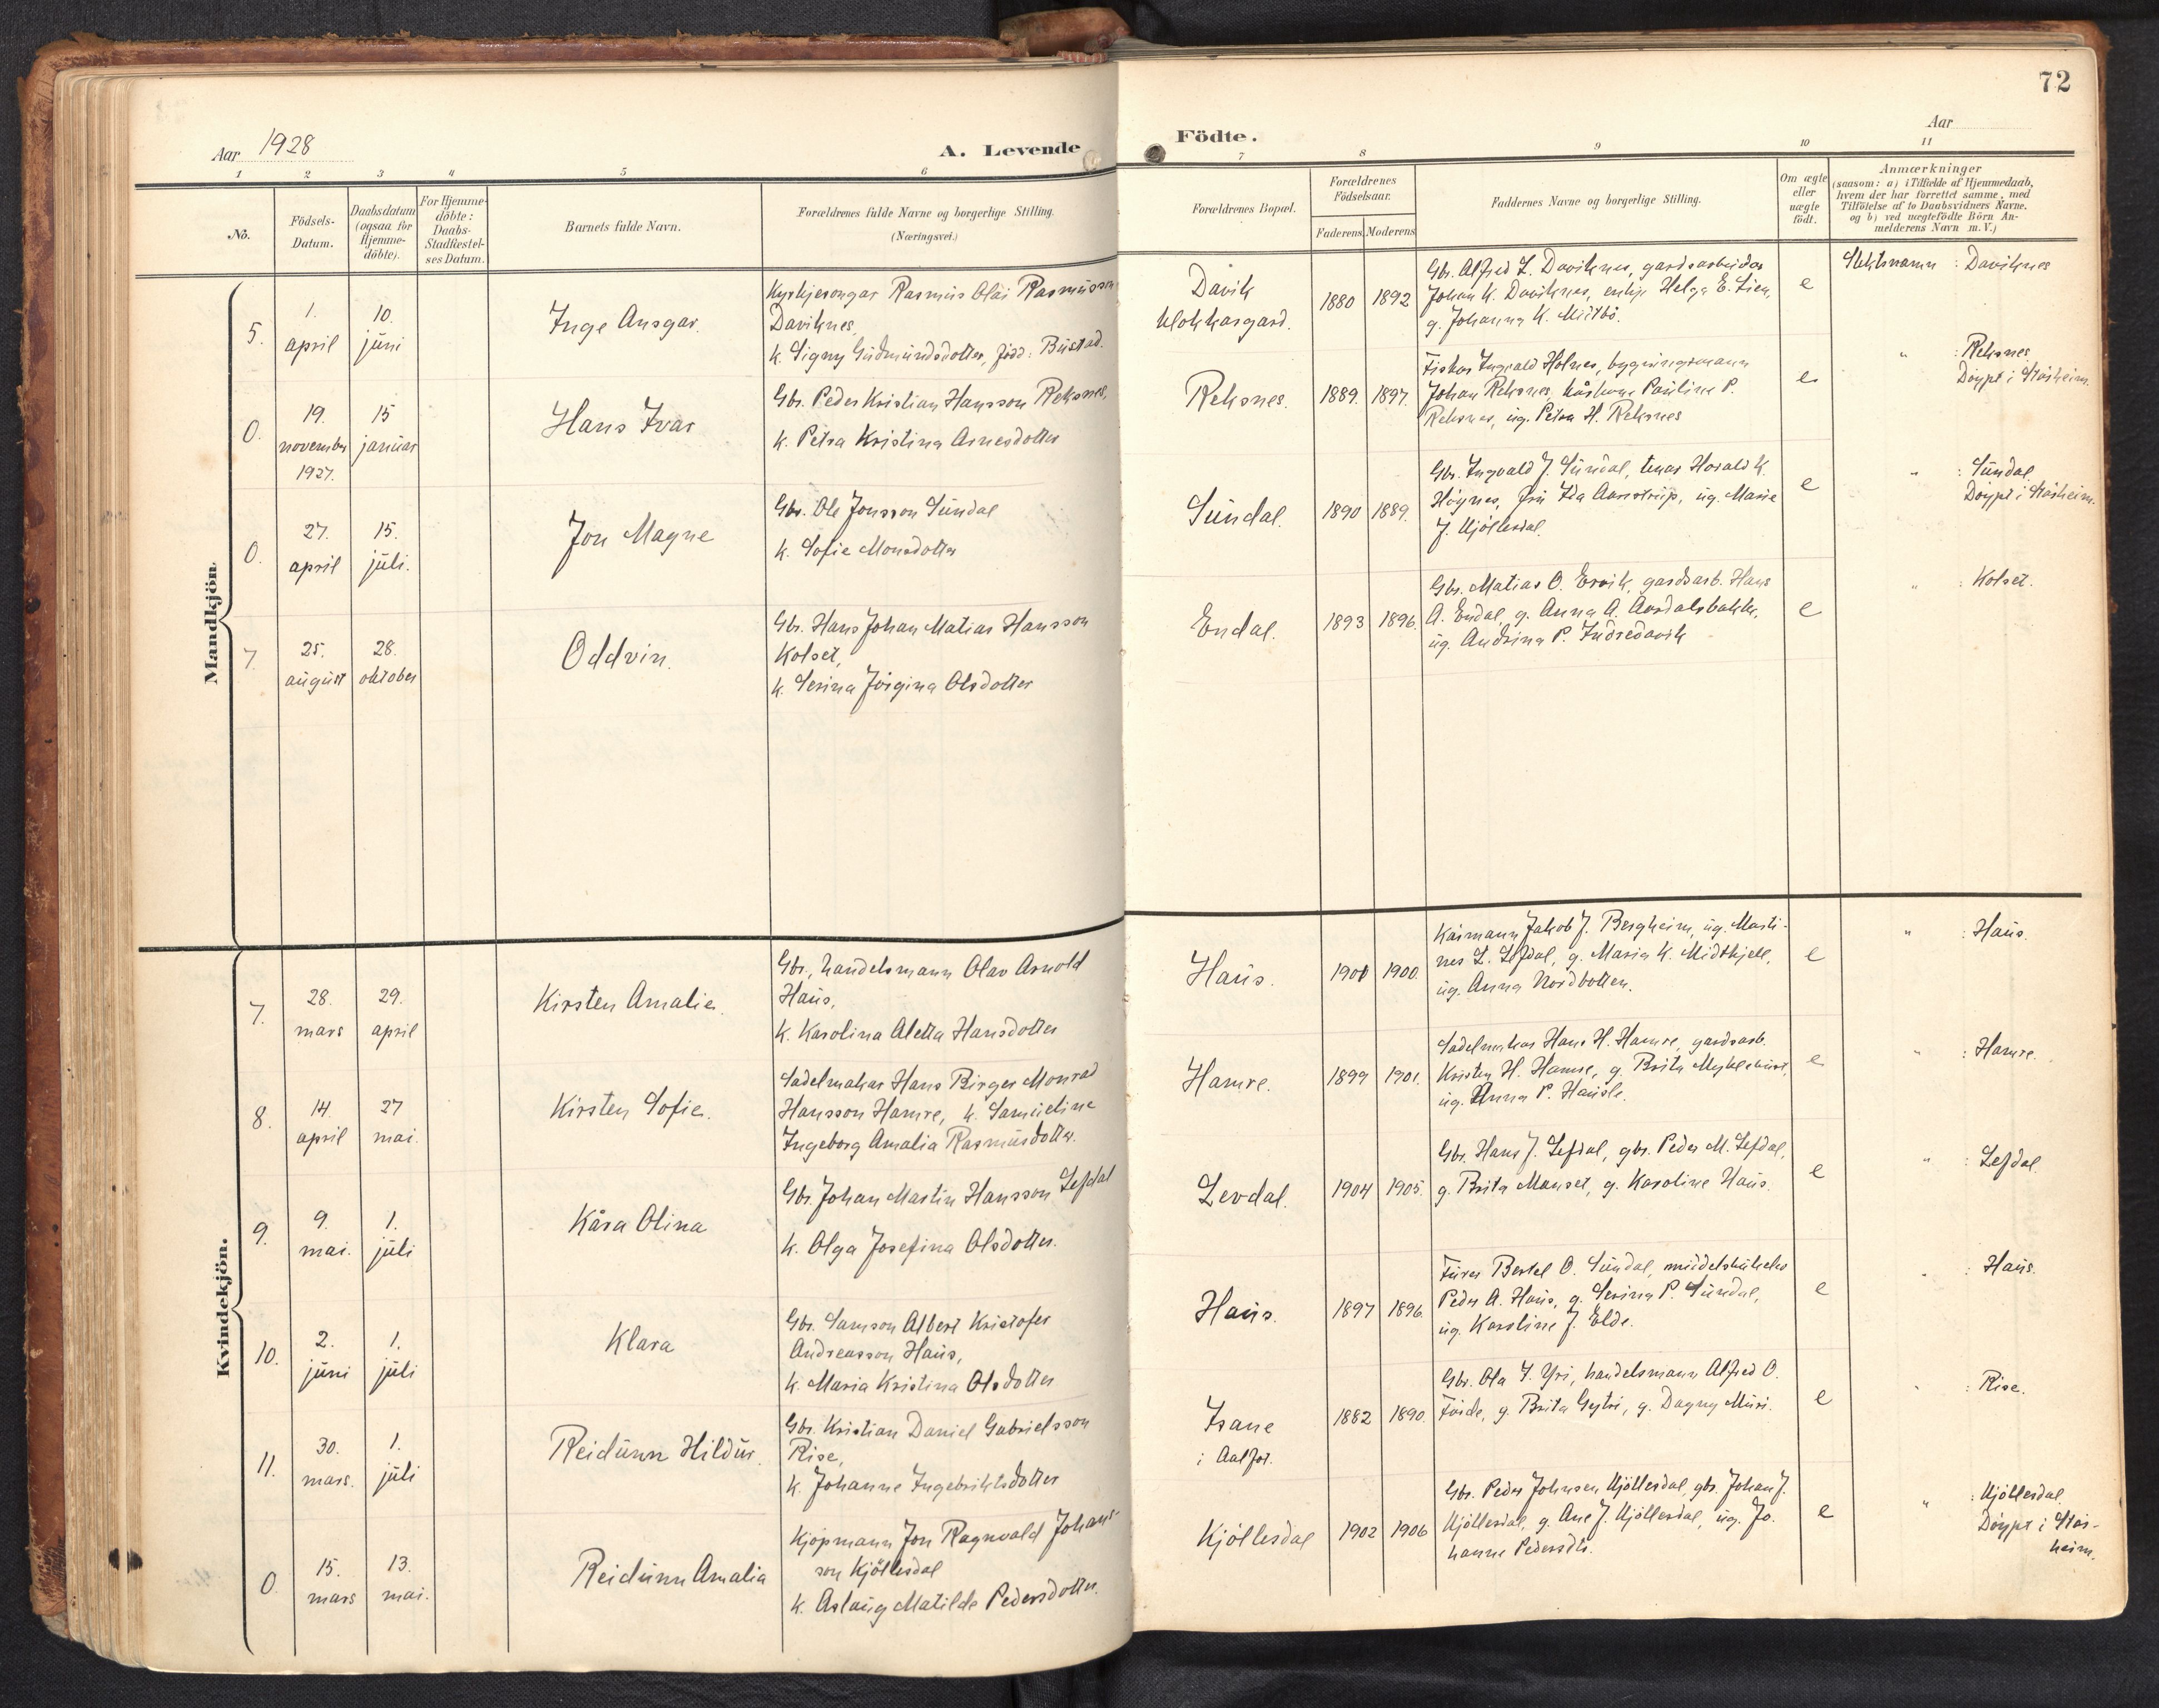 72
Aar 1928
A. Levende
Födte.
Aar
1 2 3 4 5 6 7 8 9 10 11
No.
Födsels-
Datum.
Daabsdatum
(ogsaa for
Hjemme-
döbte).
For Hjemme-
döbte:
Daabs-
Stadfæstel-
ses Datum.
Barnets fulde Navn.
Forældrenes fulde Navne og borgerlige Stilling.
(Næringsvei.)
Forældrenes Bopæl.
Forældrenes
Födselsaar.
Faderens. Moderens.
Faddernes Navne og borgerlige Stilling.
Om ægte
eller
uægte
födt.
Anmærkninger
(saasom: a) i Tilfælde af Hjemmedaab,
hvem der har forrettet samme, med
Tilföielse af to Daabsvidners Navne.
og b) ved uægtefödte Börn An-
melderens Navn m. V.)
Mandkjön.
5.
1.
april
10.
juni
Inge Ansgar.
Kyrkjesongar Rasmus Olai Rasmusson
Daviknes,
k. Signy Gudmundsdotter, född: Bustad.
Davik
klokkargard.
1880 1892
Gbr. Alfred L. Daviknes, gardsarbeidar
Johan K. Daviknes, enkje Helga E. Lien,
g. Johanna K. Midtbö.
e
Slektsnamn : Daviknes
0.
19.
november
1927.
15
januar
Hans Ivar
Gbr. Peder Kristian Hansson Reksnes,
k. Petra Kristina Arnesdotter
Reksnes.
1889. 1897.
Fiskar Ingvald Holnes, bygningsmann
Johan Reksnes, huskone Pauline P.
Reksnes, ug. Petra H. Reksnes
e
" : Reksnes.
Döypt i Stårheim.
0.
27.
april
15.
juli.
Jon Magne
Gbr. Ole Jonsson Sundal
k. Sofie Monsdotter
Sundal.
1890 1889.
Gbr. Ingvald J. Sundal, tenar Harald K.
Höynes, fru Ida Aarstrup, ug. Marie
J. Kjöllesdal.
e
" : Sundal
Döypt i Stårheim.
7.
25.
august
28.
oktober
Oddvin.
Gbr. Hans Johan Matias Hansson
Kolset,
k. Serina Jörgina Olsdotter
Endal.
1893 1896.
Gbr. Matias O. Ervik, gardsarb. Hans
A. Endal, g. Anna A. Aardalsbakke,
ug. Andrina P. Indredavik
e
" : Kolset.
Kvindekjön.
7.
28.
mars
29.
april
Kirsten Amalie.
Gbr., handelsmann Olav Arnold
Haus,
k. Karolina Aletta Hansdotter
Haus.
1901 1900.
Kårmann Jakob J. Bergheim, ug. Marti-
nes L. Lefdal, g. Maria K. Midthjell,
ug. Anna Nordbotten.
e
" : Haus.
8.
14.
april
27
mai.
Kirsten Sofie.
Sadelmakar Hans Birger Monrad
Hansson Hamre, k. Samueline
Ingeborg Amalia Rasmusdotter.
Hamre.
1899 1901.
Sadelmakar Hans H. Hamre, gardsarb.
Kristen H. Hamre, g. Brita Myklebust,
ug. Anna P. Hausle.
e
" : Hamre.
9.
9.
mai.
1.
juli
Kåra Olina
Gbr. Johan Martin Hansson Lefdal
k. Olga Josefina Olsdotter.
Levdal.
1904 1905.
Gbr. Hans J. Lefdal, gbr. Peder M. Lefdal,
g. Brita Manset, g. Karoline Haus.
e
" : Lefdal
10.
2.
juni
1.
juli
Klara
Gbr. Samson Albert Kristofer
Andreasson Haus,
k. Maria Kristina Olsdotter
Haus.
1897 1896.
Furer Bertel O. Sundal, middelskuleelev
Peder A. Haus, g. Serina P. Sundal,
ug. Karoline J. Elde.
e
" : Haus.
11.
30.
mars.
1.
juli
Reidunn Hildur.
Gbr. Kristian Daniel Gabrielsson
Rise,
k. Johanne Ingebriktsdotter
Isane
i Aalfot.
1882 1890.
Gbr. Ola I. Yri, handelsmann Alfred O.
Förde, g. Brita Gytri, g. Dagny Muri.
e
" : Rise.
0.
15.
mars
13.
mai.
Reidunn Amalia
Kjöpmann Jon Ragnvald Johans-
son Kjöllesdal
k. Aslaug Matilde Pedersdotter.
Kjöllesdal
1902 1906
Gbr. Peder Johnsen Kjöllesdal, gbr. Johan J.
Kjöllesdal, g. Ane J. Kjöllesdal, ug. Jo-
hanne Pedersdtr.
e
" : Kjöllesdal
Döypt i Står-
heim.